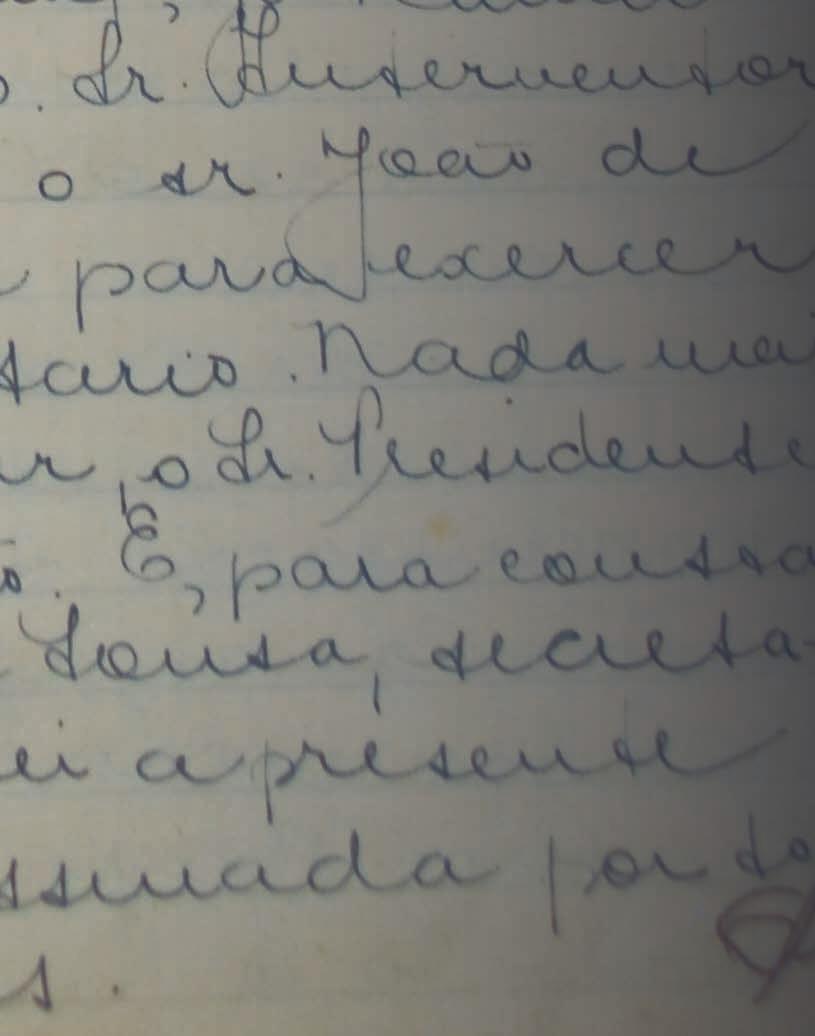 . Sr. Interventor
o sr. João de
para exercer
tario. Nada mai
r, o Sr. Presidente
o. E, para consta
Sousa, secreta-
ei a presente
ssinada por to
s.